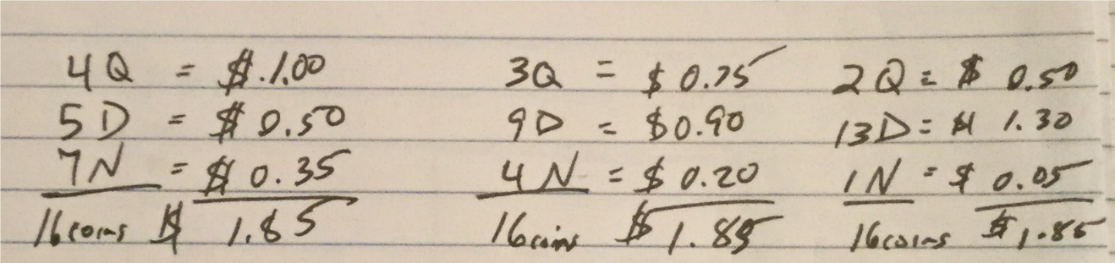 4Q = $.1.00
5D = $0.50
7N = $0.35
16coins $ 1.85
3Q = $0.75
9D = $0.90
4N = $0.20
16coins $1.85
2Q = $0.50
13D = $1.30
1N = $0.05
16coins $1.85